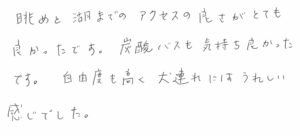 眺めと湖までのアクセスの良さがとても
良かったです。炭酸バスも気持ち良かった
です。自由度も高く犬連れにはうれしい
感じでした。